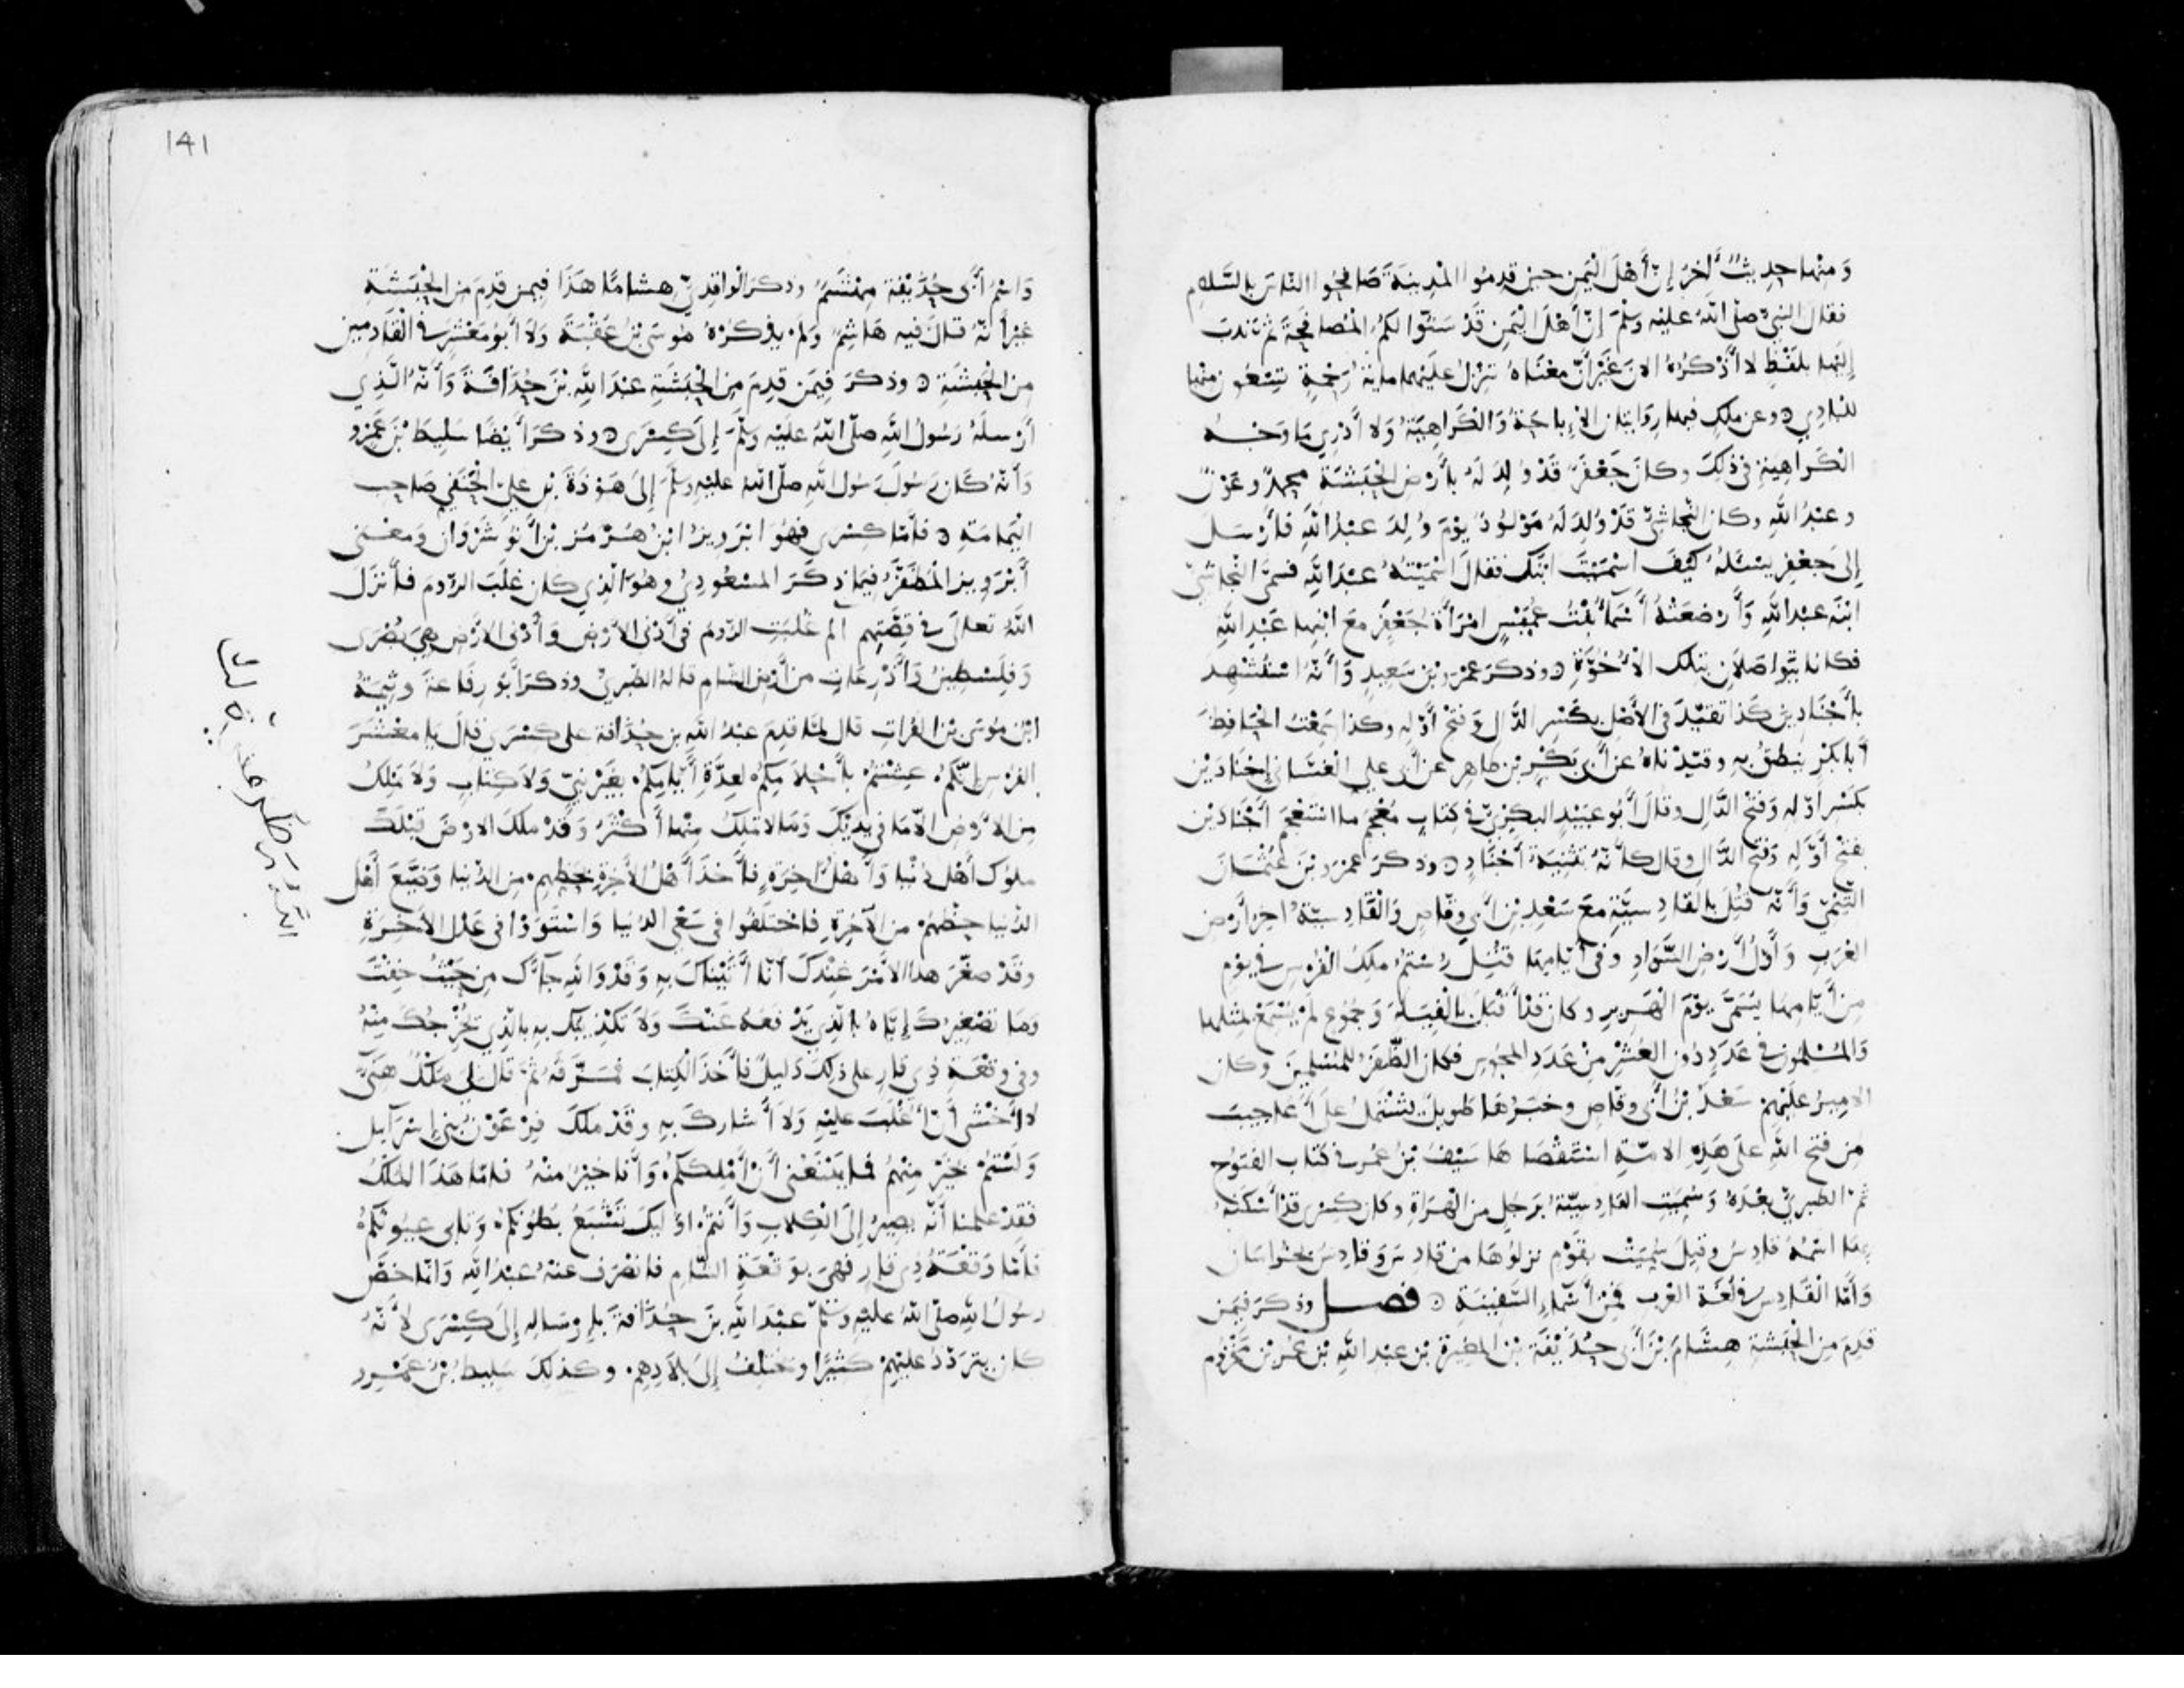 وَمِنْهَا حَدِيثٌ آخَرُ إِنَّ أَهْلَ الْيَمَنِ حِينَ قَدِمُوا الْمَدِينَةَ صَافَحُوا النَّاسَ بِالسَّلَامِ
فَقَالَ النَّبِيُّ صَلَّى اللَّهُ عَلَيْهِ وَسَلَّمَ إِنَّ أَهْلَ الْيَمَنِ قَدْ سَنُّوا لَكُمُ الْمُصَافَحَةَ ثُمَّ نَدَبَ
إِلَيْهَا بِلَفْظٍ لَا أَذْكُرُهُ الْآنَ غَيْرَ أَنَّ مَعْنَاهُ تَنْزِلُ عَلَيْهِمَا مِايَةُ رَحْمَةٍ تِسْعُونَ مِنْهَا
لِلْبَادِي وَعَنْ مَلِكٍ فِيهَا رِوَايَتَانِ الْإِبَاحَةُ وَالْكَرَاهِيَةُ وَلَا أَدْرِي مَا وَجْهُ
الْكَرَاهِيَةِ فِي ذَلِكَ وَكَانَ جَعْفَرٌ قَدْ وُلِدَ لَهُ بِأَرْضِ الْحَبَشَةِ مُحَمَّدٌ وَعَوْنٌ
وَعَبْدُ اللَّهِ وَكَانَ النَّجَاشِيُّ قَدْ وُلِدَ لَهُ مَوْلُودٌ يَوْمَ وُلِدَ عَبْدُ اللَّهِ فَأَرْسَلَ
إِلَى جَعْفَرٍ يَسْئَلُهُ كَيْفَ أَسْمَيْتَ ابْنَكَ فَقَالَ أَسْمَيْتُهُ عَبْدَ اللَّهِ فَسَمَّى النَّجَاشِيُّ
ابْنَهُ عَبْدَ اللَّهِ وَأَرْضَعَتْهُ أَسْمَاءُ بِنْتُ عُمَيْسٍ امْرَأَةُ جَعْفَرٍ مَعَ ابْنِهَا عَبْدِ اللَّهِ
فَكَانَا يَتَوَاصَلَانِ بِتِلْكَ الْأُخُوَّةِ وَذَكَرَ عَمْرَو بْنَ سَعِيدٍ وَأَنَّهُ اسْتُشْهِدَ
بِأَجْنَادِينَ كَذَا تَقَيَّدَ فِي الْأَصْلِ بِكَسْرِ الدَّالِ وَفَتْحِ أَوَّلِهِ وَكَذَا سَمِعْتُ الْحَافِظَ
أَبَا بَكْرٍ يَنْطِقُ بِهِ وَقَيَّدْنَاهُ عَنْ أَبِي بَكْرِ بْنِ طَاهِرٍ عَنْ أَبِي عَلِيٍّ الْغَسَّانِي إِجْنَادَيْنِ
بِكَسْرِ أَوَّلِهِ وَفَتْحِ الدَّالِ وَقَالَ أَبُو عُبَيْدٍ الْبَكْرِيُّ فِي كِتَابِ مُعْجَمِ مَا اسْتَعْجَمَ أَجْنَادَيْنِ
بِفَتْحِ أَوَّلِهِ وَفَتْحِ الدَّالِ وَقَالَ كَأَنَّهُ تَثْنِيَةُ أَجْنَادٍ وَذَكَرَ عَمْرَو بْنَ عُثْمَانَ
التَّيْمِيَّ وَأَنَّهُ قُتِلَ بِالْقَادِسِيَّةِ مَعَ سَعْدِ بْنِ أَبِي وَقَّاصٍ وَالْقَادِسِيَّةُ آخِرُ أَرْضِ
الْعَرَبِ وَأَوَّلُ أَرْضِ السَّوَادِ وَفِي أَيَّامِهَا قُتِلَ رُسْتُمُ مَلِكُ الْفُرْسِ فِي يَوْمٍ
مِنْ أَيَّامِهَا يُسَمَّى يَوْمَ الْهَرِيرِ وَكَانَ قَدْ أَقْبَلَ بِالْفِيَلَةِ وَجُمُوعٍ لَمْ يُسْمَعْ بِمِثْلِهَا
وَالْمُسْلِمُونَ فِي عَدَدٍ دُونَ الْعُشْرِ مِنْ عَدَدِ الْمَجُوسِ فَكَانَ الظَّفَرُ لِلْمُسْلِمِينَ وَكَانَ
الْأَمِيرُ عَلَيْهِمْ سَعْدَ بْنَ أَبِي وَقَّاصٍ وَخَبَرُهَا طَوِيلٌ يَشْتَمِلُ عَلَى أَعَاجِيبَ
مِنْ فَتْحِ اللَّهِ عَلَى هَذِهِ الْأُمَّةِ اسْتَقْصَاهَا سَيْفُ بْنُ عُمَرَ فِي كِتَابِ الْفُتُوحِ
ثُمَّ الطَّبَرِيُّ بَعْدَهُ وَسُمِّيَتِ الْقَادِسِيَّةُ بِرَجُلٍ مِنَ الْهَرَاةِ وَكَانَ كِسْرَى قَدْ أَسْكَنَهُ
بِهَا اسْمُهُ قَادِسُ وَقِيلَ سُمِّيَتْ بِقَوْمٍ نَزَلُوهَا مِنْ قَادِسَ وَقَادِسُ بِخُرَاسَانَ
وَأَمَّا الْقَادِسُ فِي لُغَةِ الْعَرَبِ فَمِنْ أَسْمَاءِ السَّفِينَةِ فصل وَذَكَرَ فِيمَنْ
قَدِمَ مِنَ الْحَبَشَةِ هِشَامَ بْنَ أَبِي حُذَيْفَةَ بْنِ الْمُغِيرَةِ بْنِ عَبْدِ اللَّهِ بْنِ عُمَرَ بْنِ مَخْزُومٍ
141
وَاسْمُ أَبِي حُذَيْفَةَ مِهْشَمٌ وَذَكَرَ الْوَاقِدِيُّ هِشَامًا هَذَا فِيمَنْ قَدِمَ مِنَ الْحَبَشَةِ
غَيْرَ أَنَّهُ قَالَ فِيهِ هَاشِمٌ وَلَمْ يَذْكُرْهُ مُوسَى بْنُ عُقْبَةَ وَلَا أَبُو مَعْشَرٍ فِي الْقَادِمِينَ
مِنَ الْحَبَشَةِ وَذَكَرَ فِيمَنْ قَدِمَ مِنَ الْحَبَشَةِ عَبْدَ اللَّهِ بْنَ حُذَافَةَ وَأَنَّهُ الَّذِي
أَرْسَلَهُ رَسُولُ اللَّهِ صَلَّى اللَّهُ عَلَيْهِ وَسَلَّمَ إِلَى كِسْرَى وَذَكَرَ أَيْضًا سَلِيطَ بْنَ عَمْرٍو
وَأَنَّهُ كَانَ رَسُولَ رَسُولِ اللَّهِ صَلَّى اللَّهُ عَلَيْهِ وَسَلَّمَ إِلَى هَوْذَةَ بْنِ عَلِيٍّ الْحَنَفِيِّ صَاحِبِ
الْيَمَامَةِ فَأَمَّا كِسْرَى فَهُوَ ابْرَوِيزُ ابْنُ هُرْمُزَ بْنِ أَنُوشَرْوَانَ وَمَعْنَى
أَبْرَوِيزَ الْمُظَفَّرُ فِيمَا ذَكَرَ الْمَسْعُودِيُّ وَهُوَ الَّذِي كَانَ غَلَبَ الرُّومَ فَأَنْزَلَ
اللَّهُ تَعَالَى فِي قِصَّتِهِمْ الم غُلِبَتِ الرُّومُ فِي أَدْنَى الْأَرْضِ وَأَدْنَى الْأَرْضِ هِيَ بُصْرَى
وَفِلَسْطِينُ وَأَذْرِعَاتِ مِنْ أَرْضِ الشَّامِ قَالَهُ الطَّبَرِيُّ وَذَكَرَ أَبُو رِفَاعَةَ وَثِيمَةُ
ابْنُ مُوسَى بْنِ الْفُرَاتِ قَالَ لَمَّا قَدِمَ عَبْدُ اللَّهِ بْنُ حُذَافَةَ عَلَى كِسْرَى قَالَ يَا مَعْشَرَ
الْفُرْسِ إِنَّكُمْ عِشْتُمْ بِأَحْلَامِكُمْ لِعِدَّةِ أَيَّامِكُمْ بِغَيْرِ نَبِيٍّ وَلَا كِتَابٍ وَلَا تَمْلِكُ
مِنَ الْأَرْضِ إِلَّا مَا فِي يَدَيْكَ وَمَا لَا تَمْلِكُ مِنْهَا أَكْثَرُ وَقَدْ مَلَكَ الْأَرْضَ قَبْلَكَ
مُلُوكُ أَهْلِ دُنْيَا وَأَهْلِ آخِرَةٍ فَأَخَذَ أَهْلُ الْآخِرَةِ بِحَظِّهِمْ مِنَ الدُّنْيَا وَضَيَّعَ أَهْلُ
الدُّنْيَا حَظَّهُمْ مِنَ الْآخِرَةِ فَاخْتَلَفُوا فِي سَعْيِ الدُّنْيَا وَاسْتَوَوْا فِي عَدْلِ الْآخِرَةِ
وَقَدْ صَغَّرَ هَذَا الْأَمْرَ عِنْدَكَ أَنَّا أَتَيْنَاكَ بِهِ وَقَدْ وَاللَّهِ جَاءَكَ مِنْ حَيْثُ خِفْتَ
وَمَا تَصْغِيرُكَ إِيَّاهُ بِالَّذِي يَدْفَعُهُ عَنْكَ وَلَا تَكْذِيبُكَ بِهِ بِالَّذِي يُخْرِجُكَ مِنْهُ
وَفِي وَقْعَةِ ذِي قَارٍ عَلَى ذَلِكَ دَلِيلٌ فَأَخَذَ الْكِتَابَ فَمَزَّقَهُ ثُمَّ قَالَ لِي مُلْكٌ هَنِيٌّ
لَا أَخْشَى أَنْ أُغْلَبَ عَلَيْهِ وَلَا أُشَارَكَ بِهِ وَقَدْ مَلَكَ فِرْعَوْنُ بَنِي إِسْرَآيِيلَ
وَلَسْتُمْ بِخَيْرٍ مِنْهُمْ فَمَا يَمْنَعُنِي أَنْ أَمْلِكَكُمْ وَأَنَا خَيْرٌ مِنْهُ فَأَمَّا هَذَا الْمُلْكُ
فَقَدْ عَلِمْنَا أَنَّهُ يَصِيرُ إِلَى الْكِلَابِ وَأَنْتُمْ أُولَيِكَ تَشْبَعُ بُطُونُكُمْ وَتَابَى عُيُونُكُمْ
فَأَمَّا وَقْعَةُ ذِي قَارٍ فَهِيَ بِوَقْعَةِ الشَّامِ فَانْصَرَفَ عَنْهُ عَبْدُ اللَّهِ وَإِنَّمَا خَصَّ
رَسُولُ اللَّهِ صَلَّى اللَّهُ عَلَيْهِ وَسَلَّمَ عَبْدَ اللَّهِ بْنَ حُذَافَةَ بِإِرْسَالِهِ إِلَى كِسْرَى لِأَنَّهُ
كَانَ يَتَرَدَّدُ عَلَيْهِمْ كَثِيرًا وَيَخْتَلِفُ إِلَى بِلَادِهِمْ وَكَذَلِكَ سَلِيطُ بْنُ عَمْرٍو